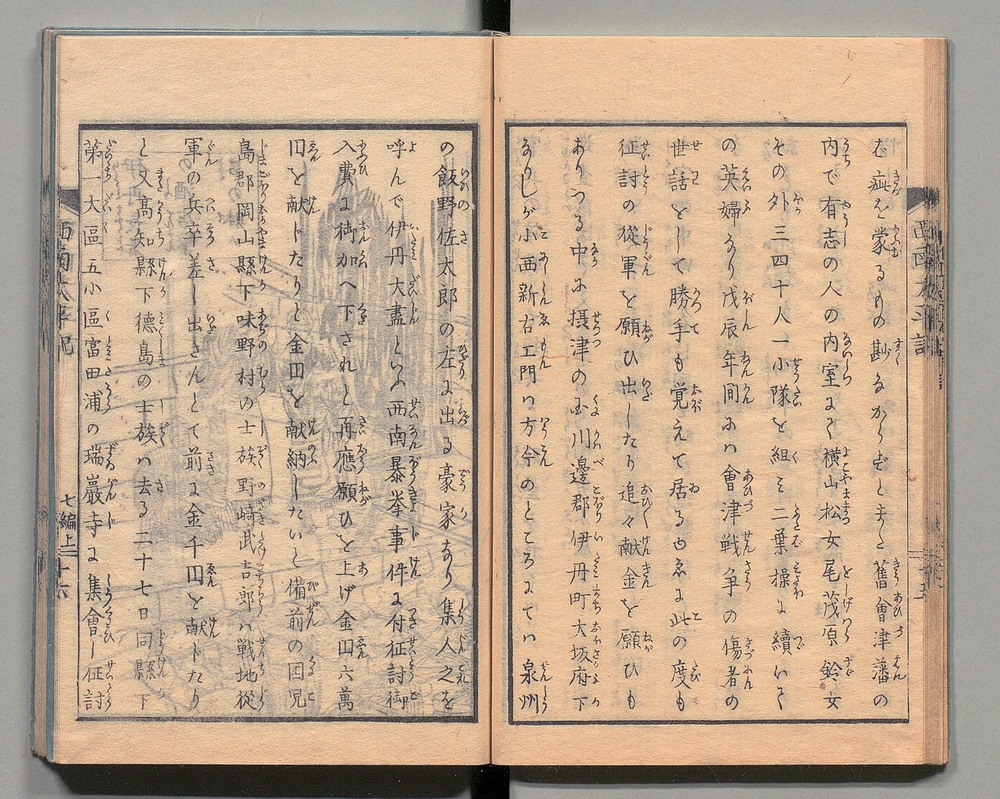 む疵を蒙るもの尠なからずとまた舊會津藩の
内で有志の人の内室にて横山松女尾茂原鈴女
その外三四十人一小隊を組ミ二葉操に續いて
の英婦なり戊辰年間にハ會津戦争の傷者の
世話をして勝手も覚えて居るゆゑに此の度も
征討の従軍を願ひ出したり追々献金を願ひも
ありつる中に摂津の国川邊郡伊丹町大坂府下
なりしが小西新右エ門ハ方今のところにてハ泉州
の飯野佐太郎の左に出る豪家なり集人之を
呼んで伊丹大盡といふ西南暴挙事件に付征討御
入費に御加へ下されと再應願ひを上げ金円六萬
旧を献じたりと金円を献納したいと備前の国児
島郡岡山縣下味野村の士族野﨑武吉郎ハ戦地従
軍の兵卒差し出さんとて前に金千円を献じたり
と又髙知縣下德島の士族ハ去る二十七日同縣下
第一大區五小區富田浦の瑞巖寺に集會し征討
西南太平記
七編上
十六